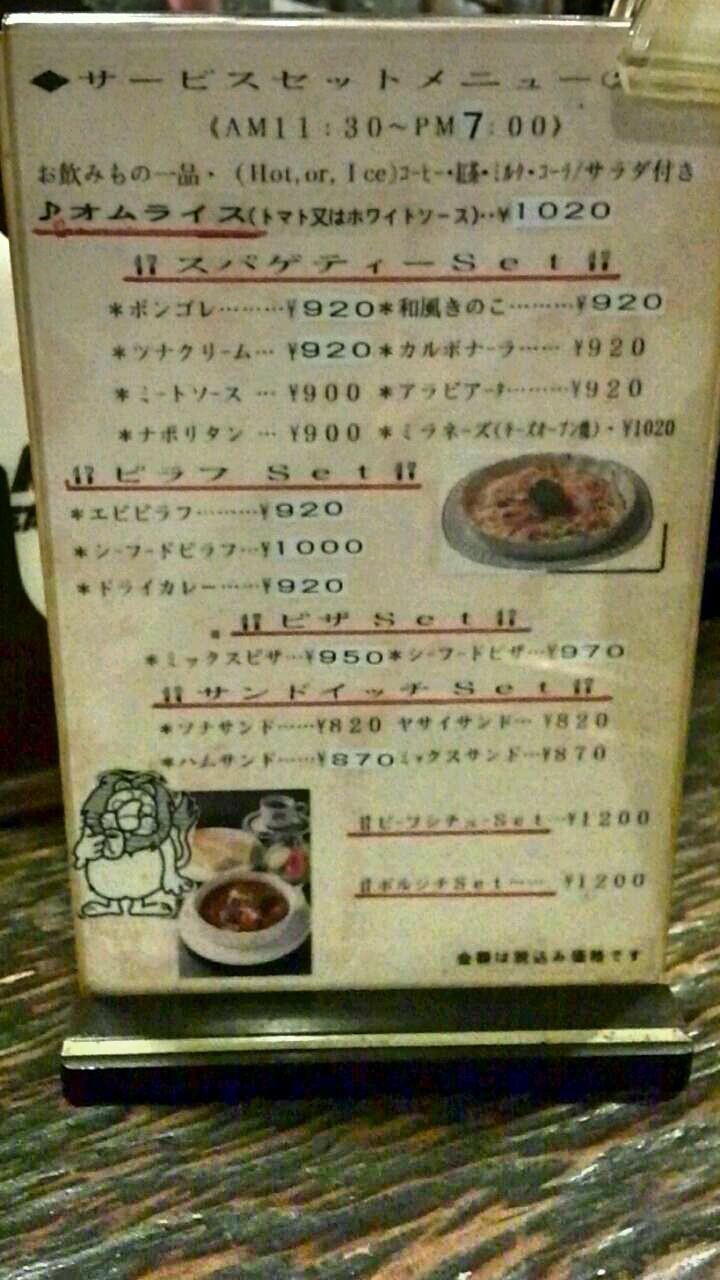 ◆サービスセットメニュー
《AM11:30~PM7:00》
お飲みもの一品・(Hot,or,Ice)コーヒー・紅茶・ミルク・コーラ/サラダ付き
♪オムライス(トマト又はホワイトソース)‥¥1020
スパゲティーSet
*ボンゴレ………¥920*和風きのこ………¥920
*ツナクリーム… ¥920*カルボナーラ…… ¥920
*ミートソース … ¥900 *アラビアータ………¥920
*ナポリタン … ¥900 *ミラネーズ(チーズオーブン焼)・¥1020
ピラフ Set
*エビピラフ………¥920
*シーフードピラフ…¥1000
*ドライカレー……¥920
ピザ Set
*ミックスピザ…¥950*シーフードピザ…¥970
サンドイッチ Set
*ツナサンド……¥820 ヤサイサンド… ¥820
*ハムサンド……¥870ミックスサンド…¥870
ビーフシチューSet…¥1200
ボルシチSet〜… ¥1200
金額は税込み価格です